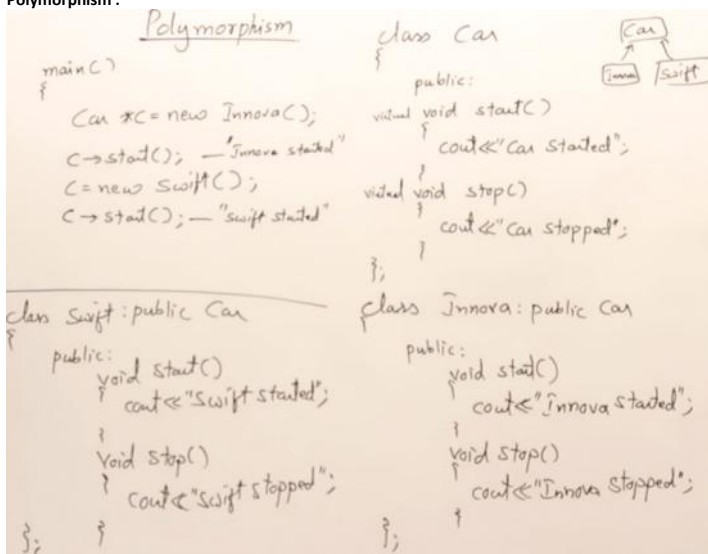 Polymorphism :
Polymorphism
main()
{
Car *C = new Innova();
C→start(); — "Innova started"
C = new Swift();
C→start(); — "swift started"
class Car
{
public:
virtual void start()
{
cout<<"Car Started";
}
virtual void stop()
{
cout<<"Car stopped";
}
};
Car
Innova Swift
class Swift : public Car
{
public:
void start()
{
cout<<"Swift started";
}
void stop()
{
cout<<"Swift stopped";
}
};
class Innova : public Car
{
public:
void start()
{
cout<<"Innova started";
}
void stop()
{
cout<<"Innova stopped";
}
};